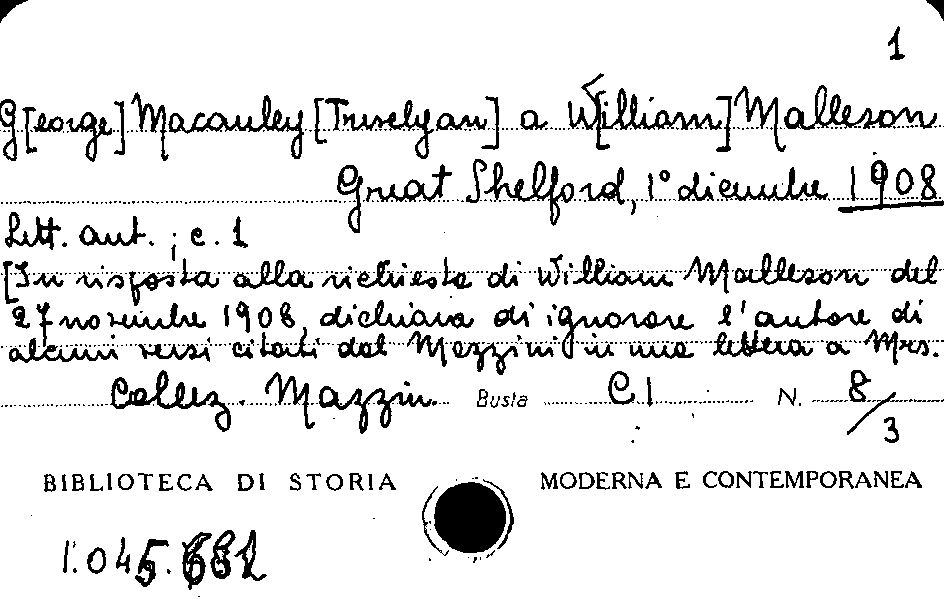 1
G[eorge] Macauley [Trevelyan] a W[illiam] Malleson
Great Shelford, 1° dicembre 1908
Lett. aut. ; c. 1
[In risposta alla richiesta di William Malleson del
27 novembre 1908, dichiara di ignorare l'autore di
alcuni versi citati dal Mazzini in una lettera a Mrs.
Collez. Mazzin. Busta C I N. 8/3
BIBLIOTECA DI STORIA MODERNA E CONTEMPORANEA
1.045.